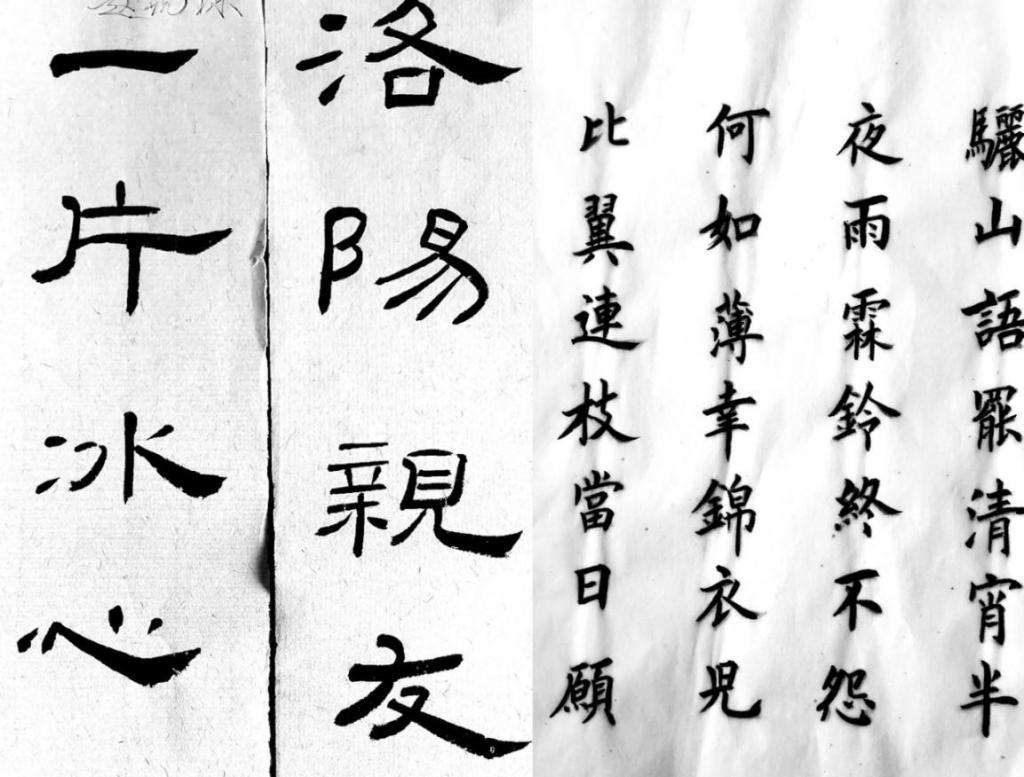 洛陽親友
一片冰心
驪山語罷清宵半
夜雨霖鈴終不怨
何如薄幸錦衣兒
比翼連枝當日願